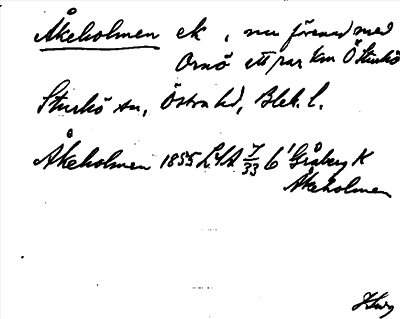 Åkeholmen ek, nu förenad med
Ornö ett par km Ö Sturkö
Sturkö sn, Östra hd, Blek. l.
Åkeholmen 1855 LSA 7/33 b' Gråberg K
Åkeholmen